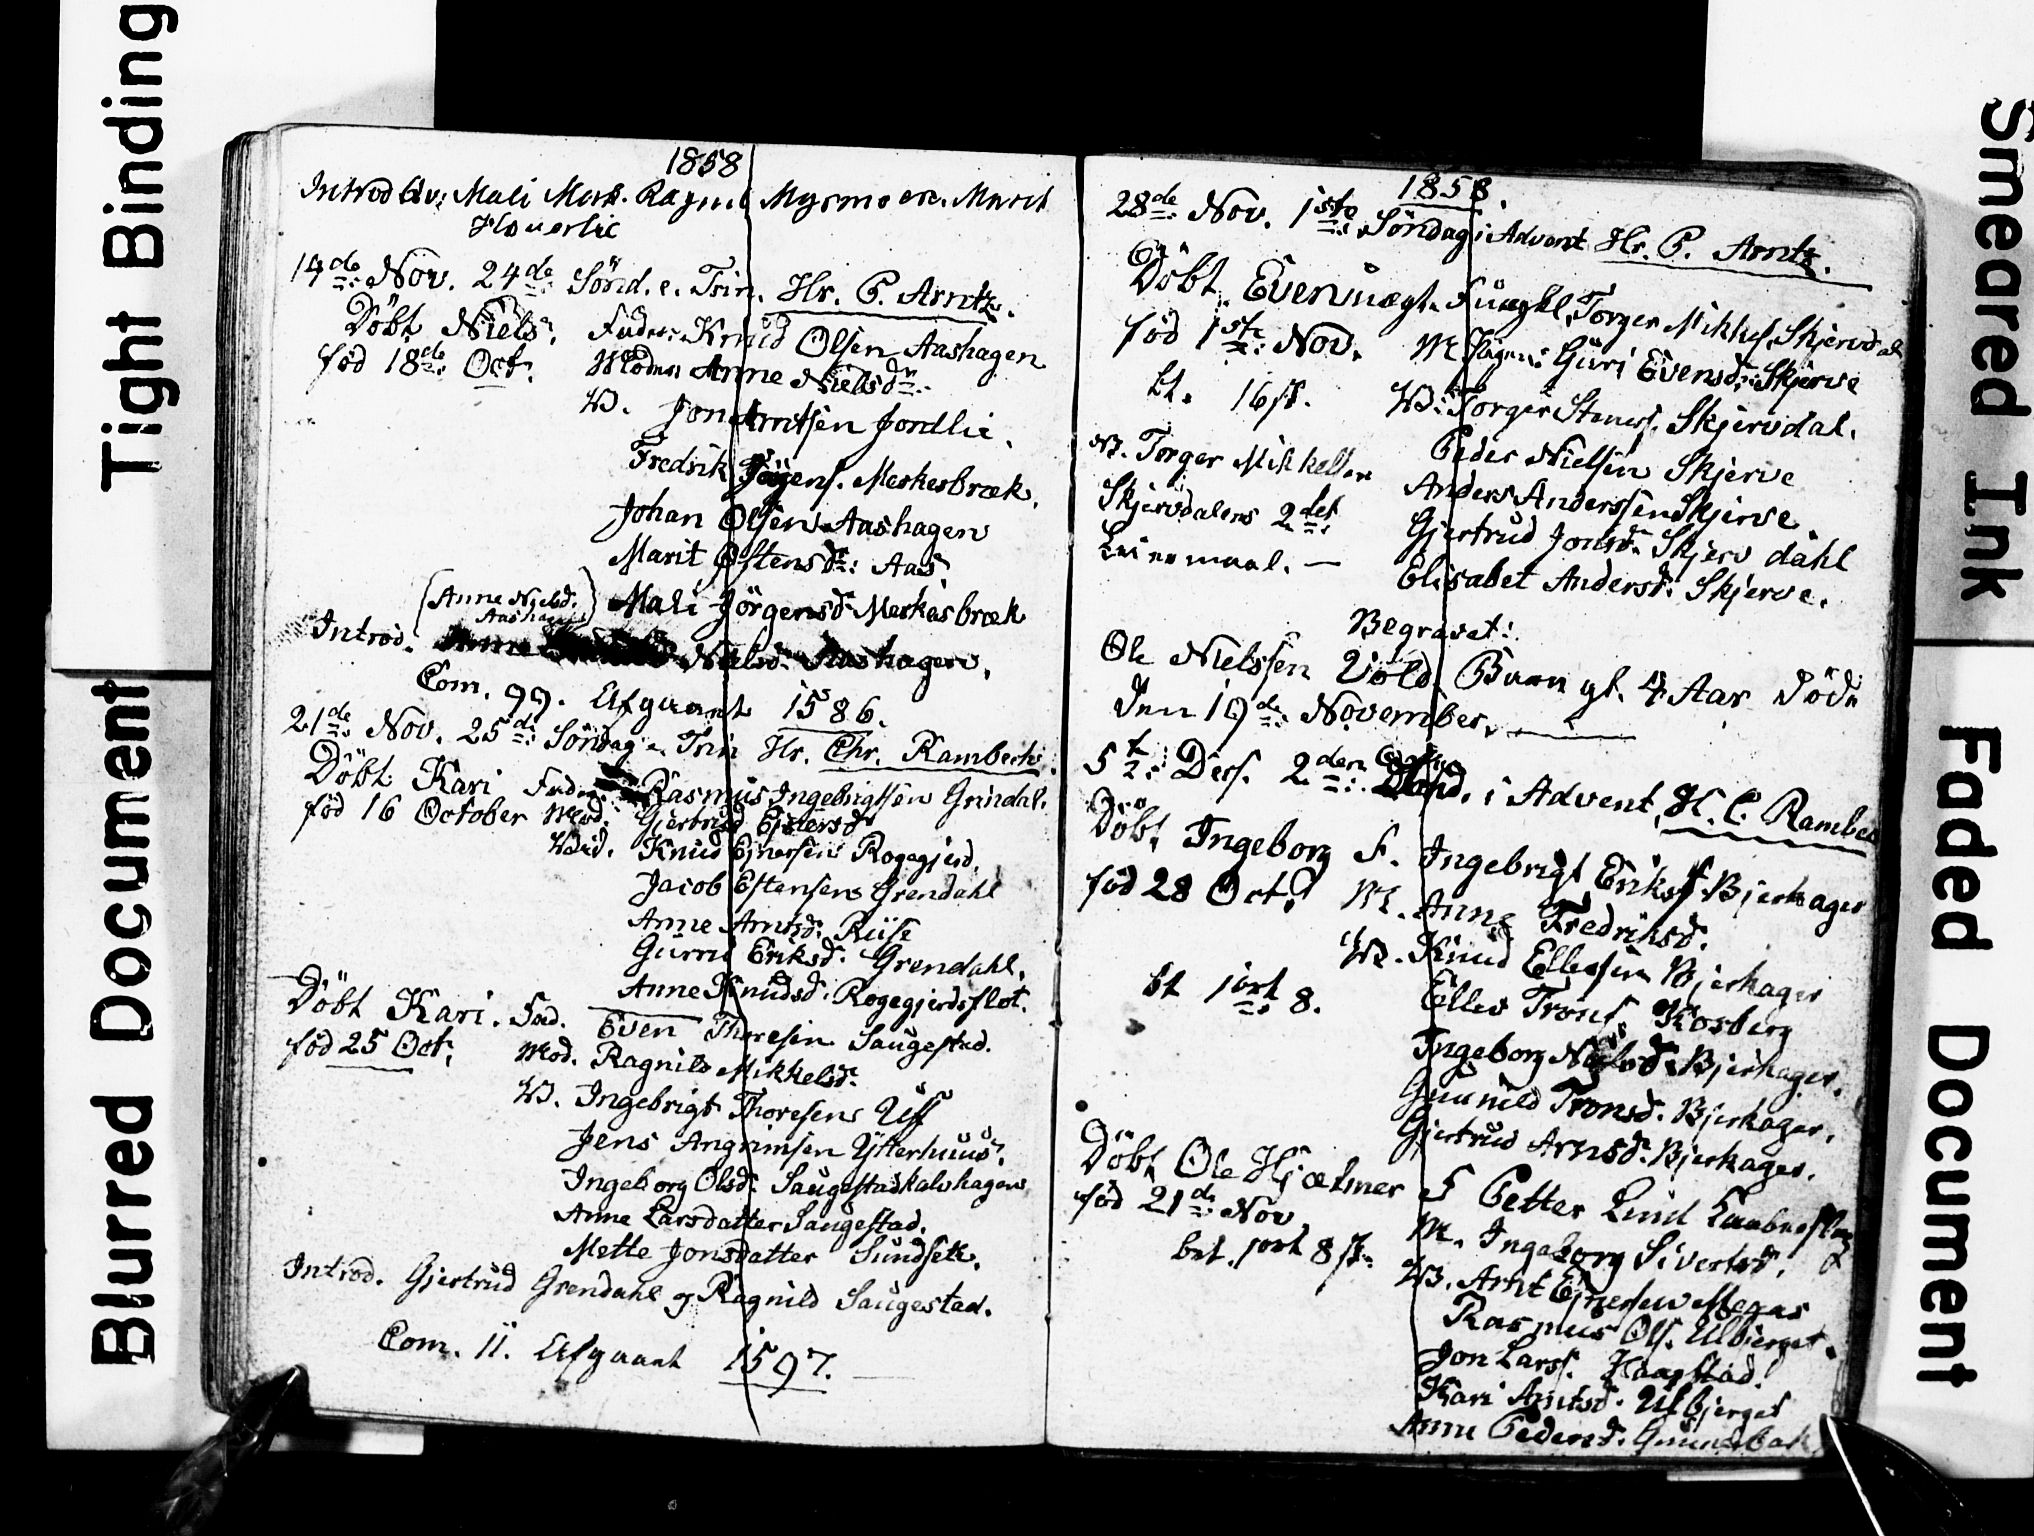 Tight Binding
Blurred Document
1858
Introd blv: Mali Mesk. Ragnil Myrmoen. Marit
Houerlie
14de Nov. 24de Sønd. e. Trin. Hr. P. Arntz.
Döbt Niels. Fader: Knud Olsen Aashagen
föd 18de Oct. Moder Anne Nielsdr.
W. Jon Arntsen Jordlie.
Fredrik Jörgens. Meskesbræk.
Johan Olsen Aashagen
Marit Østensdr: Aas.
Mali Jörgensdr Merkesbræk
(Anne Nielsd. Aashagen)
Introd. Anne Nielsd. Aashagen.
Com. 99. Afgaaet 1586.
21de Nov. 25de Söndag e. Trin Hr. Chr. Rambech.
Döbt Kari Fader Rasmus Ingebrigtsen Grindal.
föd 16 October Mod. Gjertrud Ejnersdr
Wid. Knud Ejnersen Rogegjerd.
Jacob Estensen Grendahl
Anne Arntsd. Riise
Gurru Eriksdr. Grendahl.
Anne Knudsd. Rogegjerdsflot.
Döbt Kari. Fad. Even Thoresen Saugestad.
föd 25 Oct. Mod. Ragnild Mikkelsdr
W. Ingebrigt Thoresen Uff
Jens Angrimsen Ytterhuus.
Ingeborg Olsdr Saugestadkalvhagen
Anne Larsdatter Saugestad.
Mette Jonsdatter Sundsett.
Introd. Gjertrud Grendahl og Ragnild Saugestad.
Com. 11. Afgaaet 1597.
1858.
28de Nov. 1ste Söndag i Advent Hr. P. Arntz.
Döbt Even uægt. Torger Mikkels. Skjervdal
föd 1ste Nov. M Pigen: Guri Evensd: Skjerve
bt. 16 s. W: Torger Steners. Skjervdal.
Peder Nielsen Skjerve
NB. Torger Mikkelsen
Anders Anderssen Skjerve.
Skjervdalens 2det
Gjertrud Jonsd. Skjervdahl
Leiermaal. —
Elisabet Andersd. Skjerve.
Begravet:
Ole Nielssen Vold Barn gl. 4 Aar döde
den 19de November.
5t Des. 2den Sönd. i Advent H. C. Rambec
Döbt Ingeborg F. Ingebrigt Eriks. Bjerkager
föd 28 Oct. M. Anne Fredriksd.
W. Knud Ellessen Bjerkager
bt port 8. Elles Trons. Kosberg
Ingeborg Nielsd. Bjerkager.
Gunnild Tronsd. Bjerkager.
Gjertrud Arnsd. Bjerkager.
Döbt Ole Hjælmer F Petter Lind
föd 21de Nov. M. Ingeborg Sivertsd.
bet. port 8 s. W. Arnt Ejnersen Megas
Rasmus Ols. Ulbjerget.
Jon Larss. Haagstad.
Kari Arntsd. Ulbjerget
Anne Pedersd.
Smeared Ink
Faded Document